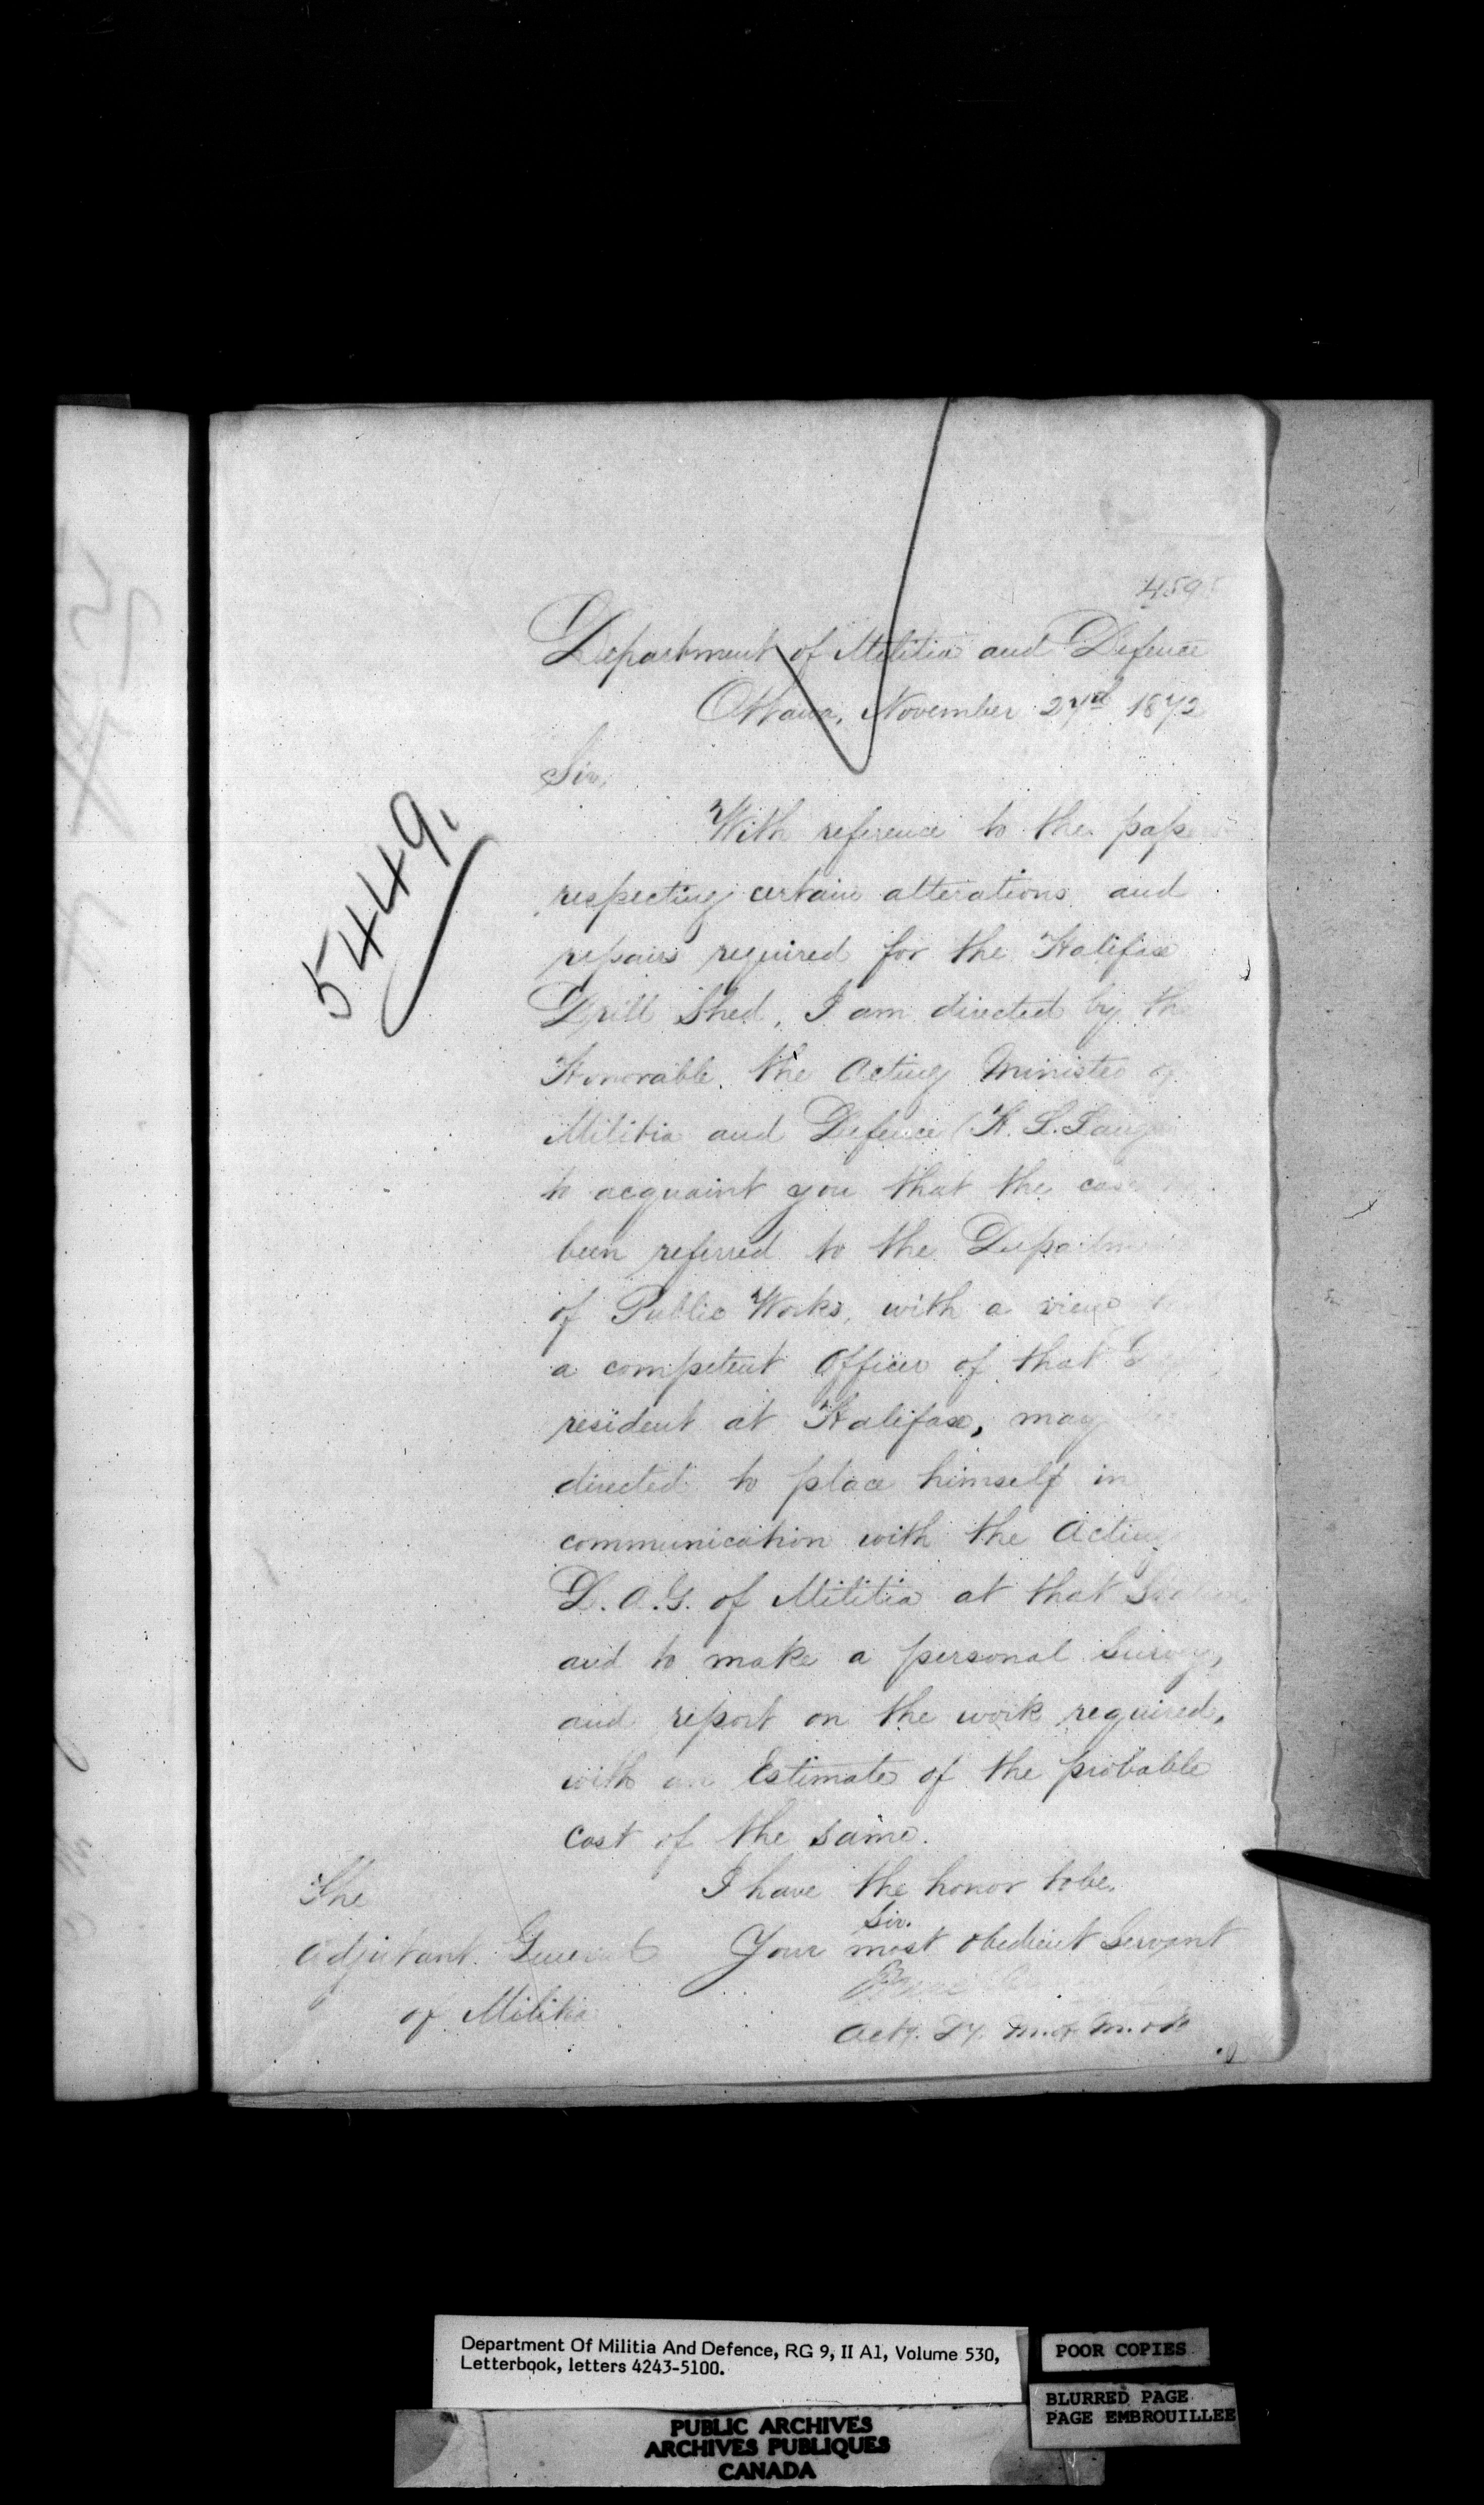 459
Department of Militia and Defence
Ottawa, November 27th 1872
Sir,
5449.
With reference to the pap
respecting certain alterations and
repairs required for the Halifax
Drill Shed, I am directed by the
Honorable the Acting Minister of
Militia and Defence (H. L. Lang
to acquaint you that the case
been referred to the Departm
of Public Works, with a view
a competent Officer of that
resident at Halifax, may
directed to place himself in
communication with the Acting
D. A. G. of Militia at that
and to make a personal Survey,
and report on the work required,
with an Estimate of the probable
cost of the same.
I have the honor to be,
Sir.
Your most obedient Servant
Actg. Dy. M. of M. & D
The
Adjutant General
of Militia
Department Of Militia And Defence, RG 9, II A1, Volume 530,
Letterbook, letters 4243-5100.
POOR COPIES
BLURRED PAGE
PAGE EMBROUILLEE
PUBLIC ARCHIVES
ARCHIVES PUBLIQUES
CANADA